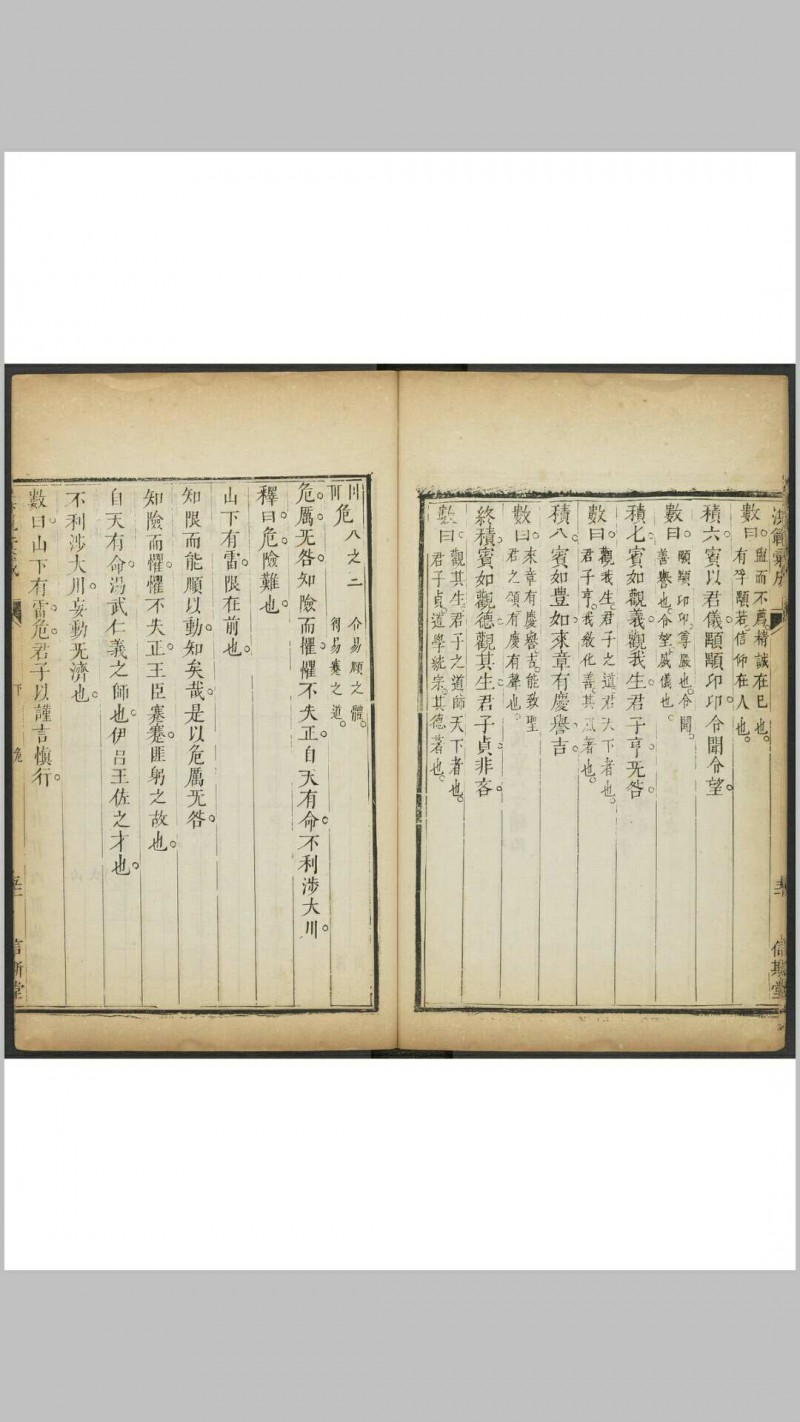 洪範彙成
數曰盥而不薦精誠在己也
有孚顒若信仰在人也
積六賓以君儀顒顒卬卬令聞令望
數曰顒顒卬卬尊嚴也令聞
善譽也令望威儀也
積七賓如觀義觀我生君子亨无咎
數曰觀我生君子之道君天下者也
君子亨我敎化善其風著也
積八賓如豊如來章有慶譽吉
數曰來章有慶譽吉能致聖
君之頌有慶有聲也
終積賓如觀德觀其生君子貞非吝
數曰觀其生君子之道師天下者也
君子貞道學統宗其德著也
信斯堂
危八之二
介易頤之體
衍易蹇之道
危厲无咎知險而懼懼不失正自天有命不利涉大川
釋曰危險難也
山下有雷限在前也
知限而能順以動知矣哉是以危厲无咎
知險而懼懼不失正王臣蹇蹇匪躬之故也
自天有命湯武仁義之師也伊呂王佐之才也
不利涉大川妄動无濟也
數曰山下有雷危君子以謹言慎行
下
信斯堂